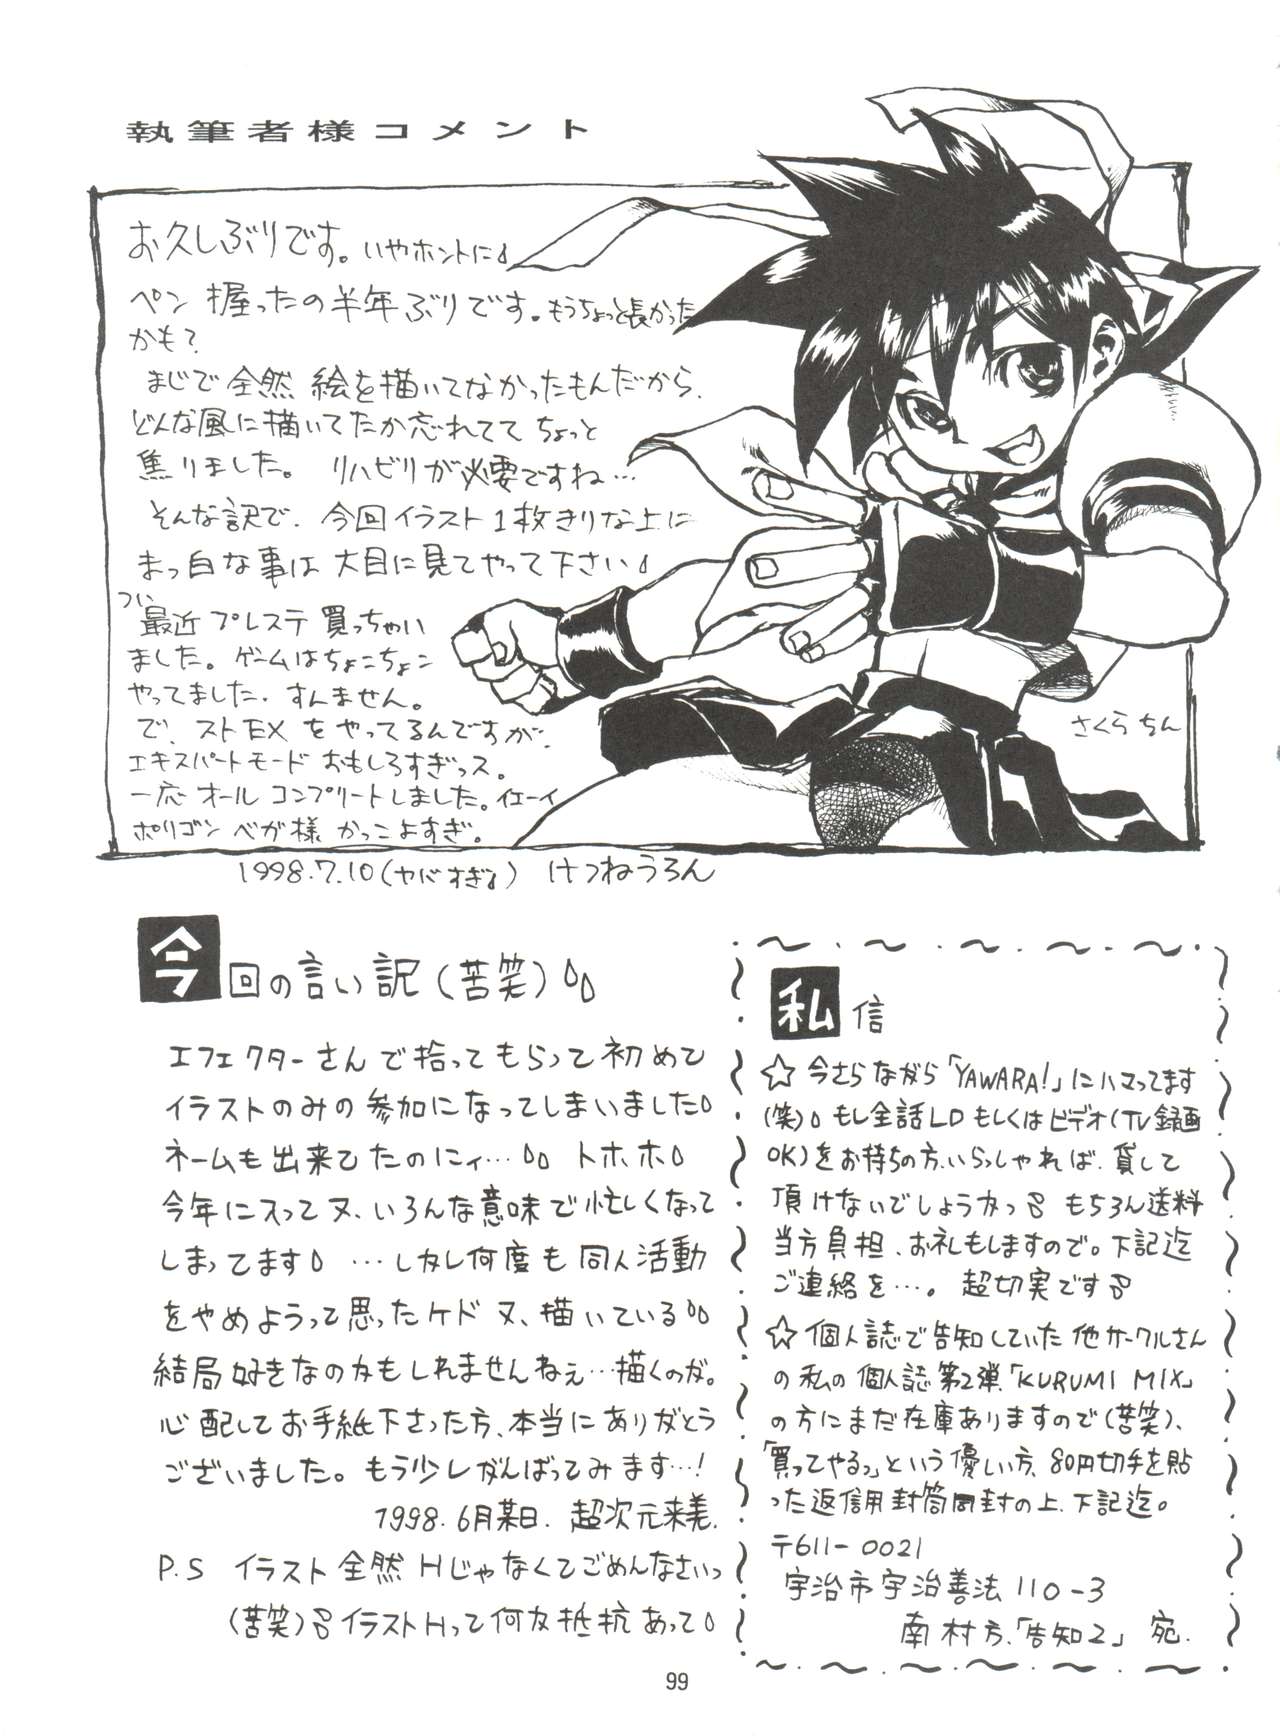 執筆者様コメント
お久しぶりです。いやホントに
ペン握ったの半年ぶりです。もうちょっと長かった
かも？
まじで全然絵を描いてなかったもんだから、
どんな風に描いてたか忘れててちょっと
焦りました。リハビリが必要ですね…
そんな訳で、今回イラスト1枚きりな上に
まっ白な事は大目に見てやって下さい
つい
最近プレステ買っちゃい
ました。ゲームはちょこちょこ
やってました。すんません。
で、ストEXをやってるんですが、
エキスパートモードおもしろすぎっス。
一応オールコンプリートしました。イエーイ
ポリゴンベガ様かっこよすぎ。
さくらちん
1998.7.10(ヤバすぎ) けつねうろん
今回の言い訳(苦笑)
エフェクターさんで拾ってもらって初めて
イラストのみの参加になってしまいました
ネームも出来てたのにィ… トホホ
今年に入って又、いろんな意味で忙しくなって
しまってます …しかし何度も同人活動
をやめようって思ったケド又、描いている
結局好きなのかもしれませんねぇ…描くのが。
心配してお手紙下さった方、本当にありがとう
ございました。もう少しがんばってみます…!
1998.6月某日. 超次元来美.
P.S イラスト全然Hじゃなくてごめんなさいっ
(苦笑) イラストHって何か抵抗あって
私信
☆今さらながら「YAWARA!」にハマってます
(笑) もし全話LDもしくはビデオ(TV録画
OK)をお持ちの方、いらっしゃれば、貸して
頂けないでしょうかっ もちろん送料
当方負担、お礼もしますので。下記迄
ご連絡を…。超切実です
☆個人誌で告知していた他サークルさん
の私の個人誌第2弾「KURUMI MIX」
の方にまだ在庫ありますので(苦笑)、
「買ってやるっ」という優しい方、80円切手を貼
った返信用封筒同封の上、下記迄。
〒611-0021
宇治市宇治善法110-3
南村方、「告知2」宛.
99